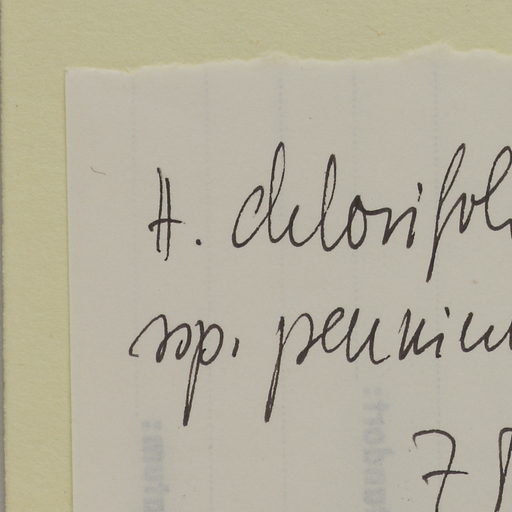 H. chlorifoli
ssp. penninu
7